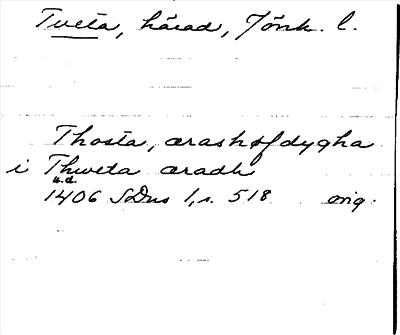 Tveta, härad, Jönk. l.
Thosta, ærashøfdygha
i Thweta æradh
u.d.
1406 SDns 1, s. 518 orig.